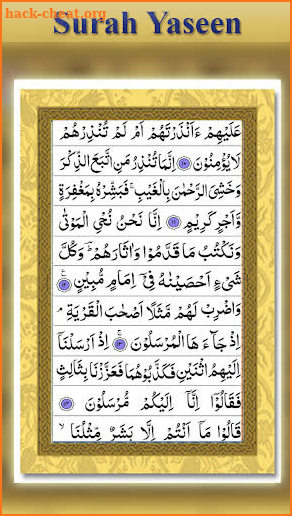 hack-cheat.org
Surah Yaseen
عَلَيْهِمْ ءَاَنْذَرْتَهُمْ اَمْ لَمْ تُنْذِرْهُمْ
لَا يُؤْمِنُوْنَ ۝۱۰ اِنَّمَا تُنْذِرُ مَنِ اتَّبَعَ الذِّكْرَ
وَخَشِيَ الرَّحْمٰنَ بِالْغَيْبِ ۚ فَبَشِّرْهُ بِمَغْفِرَةٍ
وَّاَجْرٍ كَرِيْمٍ ۝۱۱ اِنَّا نَحْنُ نُحْيِ الْمَوْتٰى
وَنَكْتُبُ مَا قَدَّمُوْا وَاٰثَارَهُمْ ۚ وَكُلَّ
شَيْءٍ اَحْصَيْنٰهُ فِيْٓ اِمَامٍ مُّبِيْنٍ ۝۱۲
وَاضْرِبْ لَهُمْ مَّثَلًا اَصْحٰبَ الْقَرْيَةِ ۘ
اِذْ جَآءَهَا الْمُرْسَلُوْنَ ۝۱۳ اِذْ اَرْسَلْنَآ
اِلَيْهِمُ اثْنَيْنِ فَكَذَّبُوْهُمَا فَعَزَّزْنَا بِثَالِثٍ
فَقَالُوْٓا اِنَّآ اِلَيْكُمْ مُّرْسَلُوْنَ ۝۱۴
قَالُوْا مَآ اَنْتُمْ اِلَّا بَشَرٌ مِّثْلُنَا ۙ
hack-cheat.org